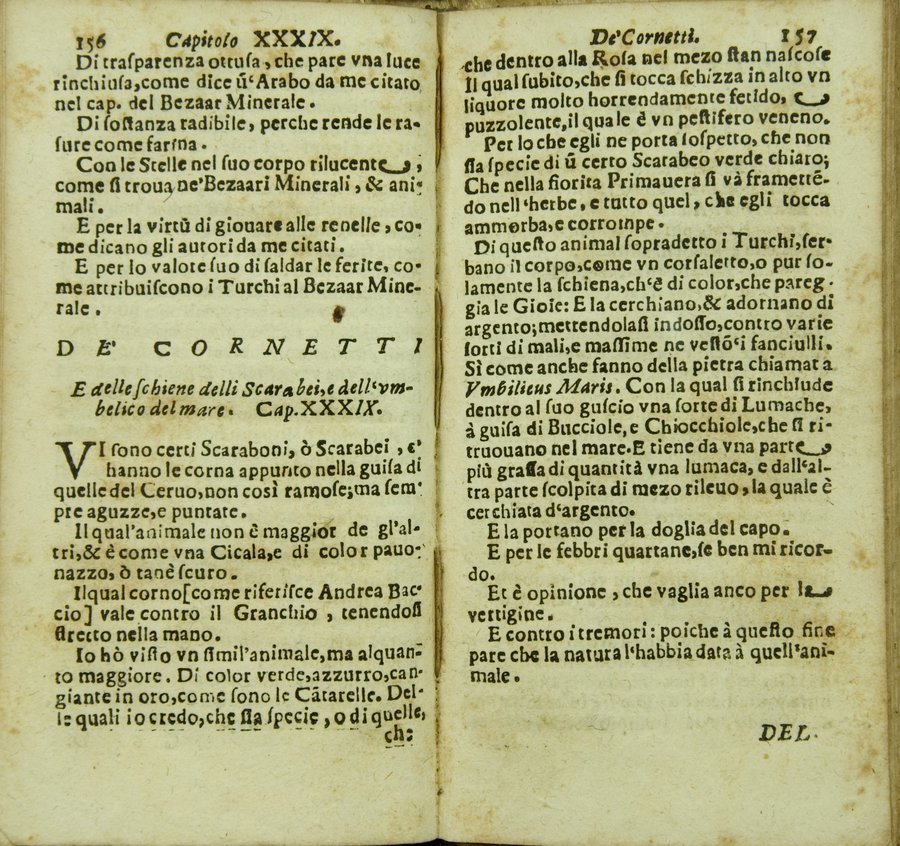 156 Capitolo XXXIX.
Di trasparenza ottusa, che pare vna luce
rinchiusa,come dice ũ'Arabo da me citato
nel cap. del Bezaar Minerale.
Di sostanza radibile, perche rende le ra-
sure come farina.
Con le Stelle nel suo corpo rilucente ;
come si troua ne'Bezaari Minerali, & ani-
mali.
E per la virtù di giouare alle renelle, co-
me dicano gli autori da me citati.
E per lo valore suo di saldar le ferite, co-
me attribuiscono i Turchi al Bezaar Mine-
rale.
DE' CORNETTI
E delle schiene delli Scarabei,e dell'vm-
belico del mare. Cap.XXXIX.
VI sono certi Scaraboni, ò Scarabei, c'
hanno le corna appunto nella guisa di
quelle del Ceruo,non così ramose;ma sem
pre aguzze,e puntate.
Il qual'animale non è maggior de gl'al-
tri,& è come vna Cicala,e di color pauo-
nazzo, ò tanè scuro.
Ilqual corno[come riferisce Andrea Bac-
cio] vale contro il Granchio, tenendosi
stretto nella mano.
Io hò visto vn simil'animale,ma alquan-
to maggiore. Di color verde,azzurro,can-
giante in oro,come sono le Cãtarelle. Del-
le quali io credo,che sia specie, o di quelle,
che
De'Cornetti. 157
che dentro alla Rosa nel mezo stan nascose
Il qual subito,che si tocca schizza in alto vn
liquore molto horrendamente fetido, e
puzzolente,il quale è vn pestifero veneno.
Per lo che egli ne porta sospetto, che non
sia specie di ũ certo Scarabeo verde chiaro;
Che nella fiorita Primauera si và framettẽ-
do nell'herbe, e tutto quel, che egli tocca
ammorba,e corrompe.
Di questo animal sopradetto i Turchi,ser-
bano il corpo,come vn corsaletto,o pur so-
lamente la schiena,ch'è di color,che pareg-
gia le Gioie: E la cerchiano,& adornano di
argento;mettendolasi indosso,contro varie
sorti di mali,e massime ne vestõ'i fanciulli.
Sì come anche fanno della pietra chiamata
Vmbilicus Maris. Con la qual si rinchiude
dentro al suo guscio vna sorte di Lumache,
à guisa di Bucciole, e Chiocchiole,che si ri-
truouano nel mare. E tiene da vna parte,
più grassa di quantità vna lumaca, e dall'al-
tra parte scolpita di mezo rileuo, la quale è
cerchiata d'argento.
E la portano per la doglia del capo.
E per le febbri quartane,se ben mi ricor-
do.
Et è opinione, che vaglia anco per la
vertigine.
E contro i tremori: poiche à questo fine
pare che la natura l'habbia data à quell'ani-
male.
DEL.